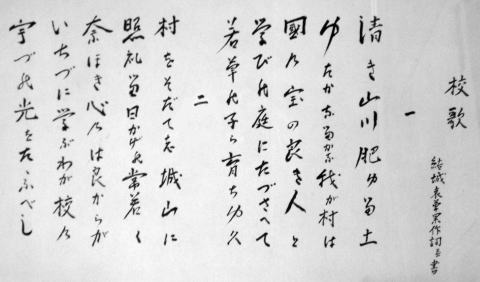 校歌
結城哀草果作詞并書
一
清き山川肥ゆる土
ゆたかなるかな我が村は
國の宝の良き人と
学びの庭にたづさへて
若草の子ら育ちゆく
二
村をそだてし城山に
照れる日かげの常若く
なほき心のはらからが
いちづに学ぶわが校の
うづの光をたたふべし